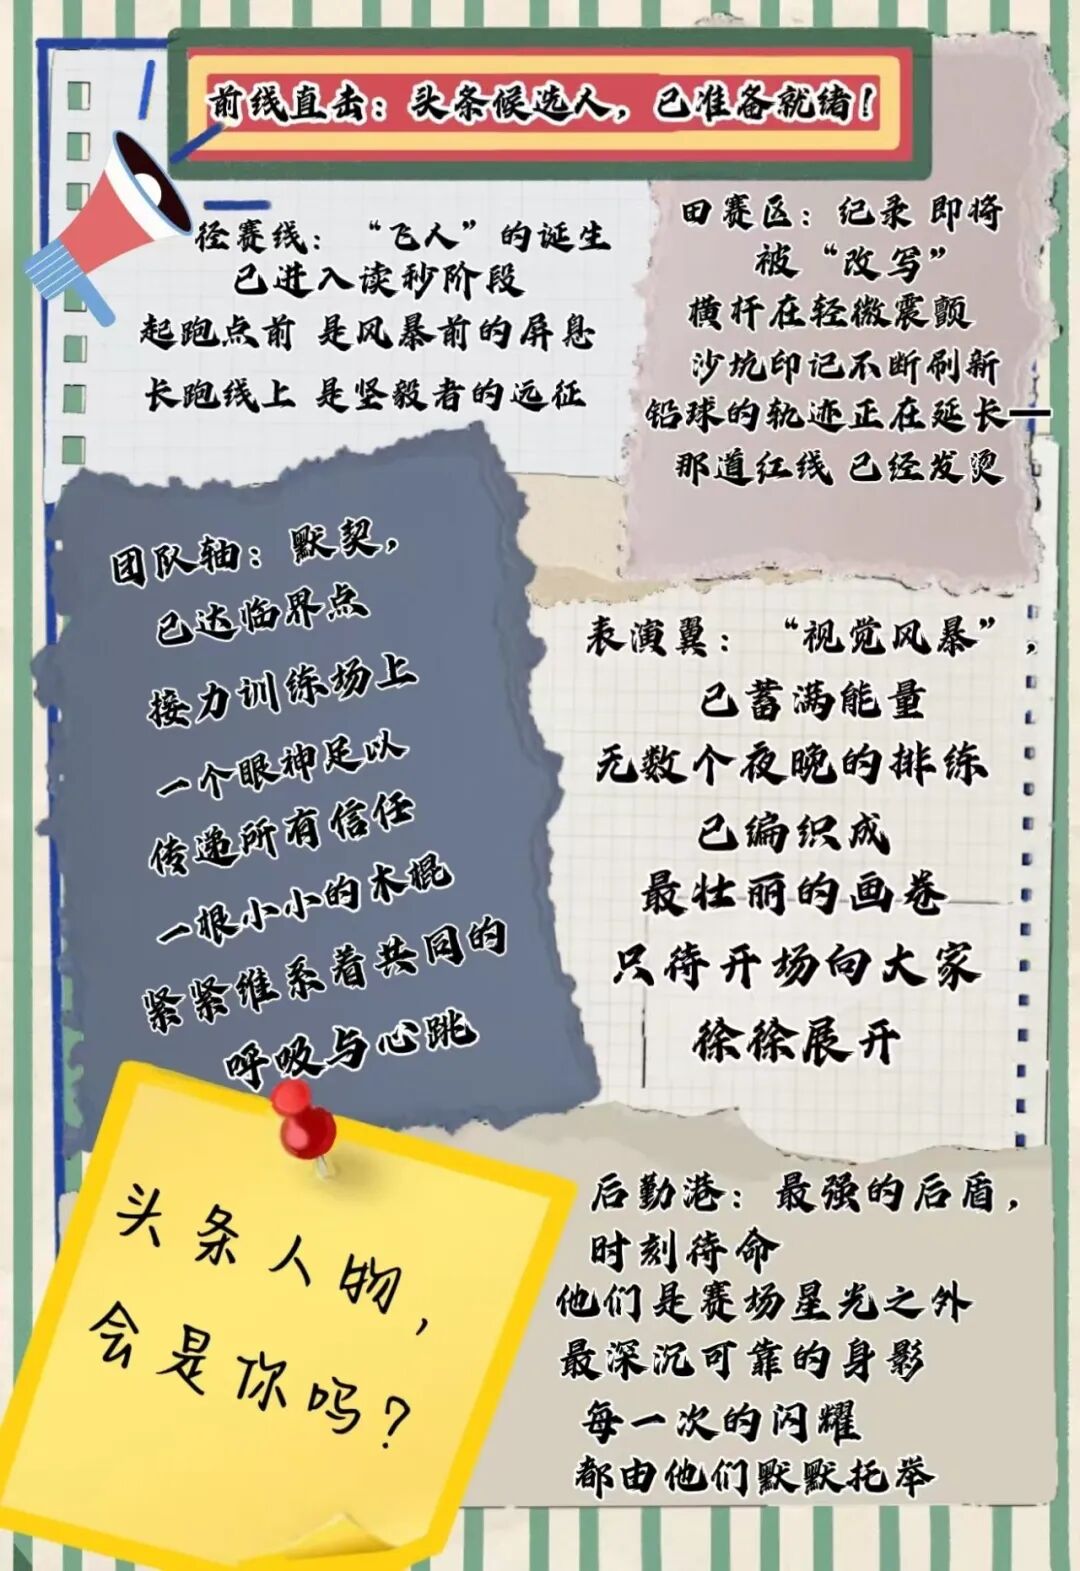 前线直击：头条候选人，已准备就绪！
径赛线：“飞人”的诞生
已进入读秒阶段
起跑点前 是风暴前的屏息
长跑线上 是坚毅者的远征
田赛区：纪录 即将
被“改写”
横杆在轻微震颤
沙坑印记不断刷新
铅球的轨迹正在延长—
那道红线 已经发烫
团队轴：默契，
已达临界点
接力训练场上
一个眼神足以
传递所有信任
一根小小的木棍
紧紧维系着共同的
呼吸与心跳
表演翼：“视觉风暴”，
已蓄满能量
无数个夜晚的排练
已编织成
最壮丽的画卷
只待开场向大家
徐徐展开
头条人物，
会是你吗？
后勤港：最强的后盾，
时刻待命
他们是赛场星光之外
最深沉可靠的身影
每一次的闪耀
都由他们默默托举